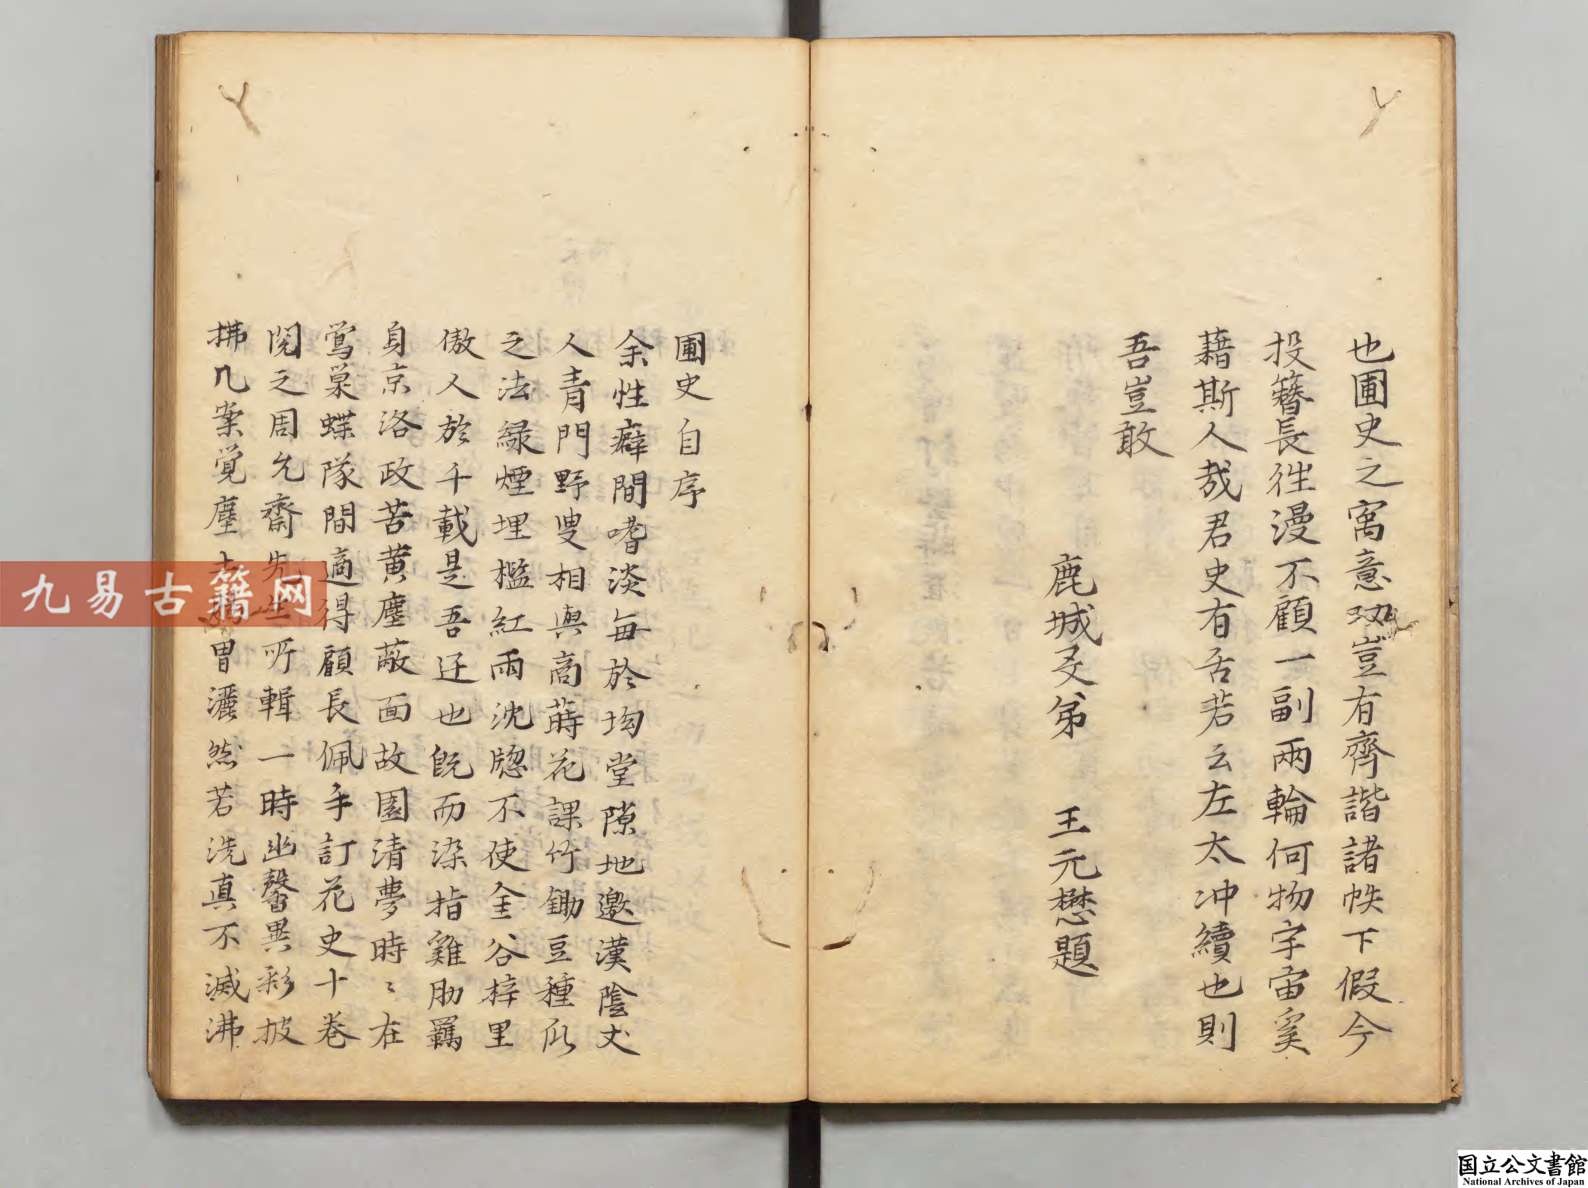 也圃史之寓意双豈有齊諧諸帙下假今
投簪長往漫不顧一副兩輪何物宇宙奚
藉斯人哉君史有舌若云左太冲續也則
吾豈敢
鹿城友弟 王元懋題
圃史自序
余性癖間嗜淡每於坳堂隙地邀漢陰丈
人青門野叟相與高蒔花課竹鋤豆種瓜
之法緑煙埋檻紅雨沈牕不使金谷梓里
傲人於千載是吾迂也既而染指雞肋羈
身京洛政苦黄塵蔽面故園清夢時〻在
鶯巢蝶隊間適得顧長佩手訂花史十卷
閲之周允齋先生所輯一時幽馨異彩披
拂几案覚塵土胃灑然若洗真不减沸
九易古籍网
国立公文書館
National Archives of Japan